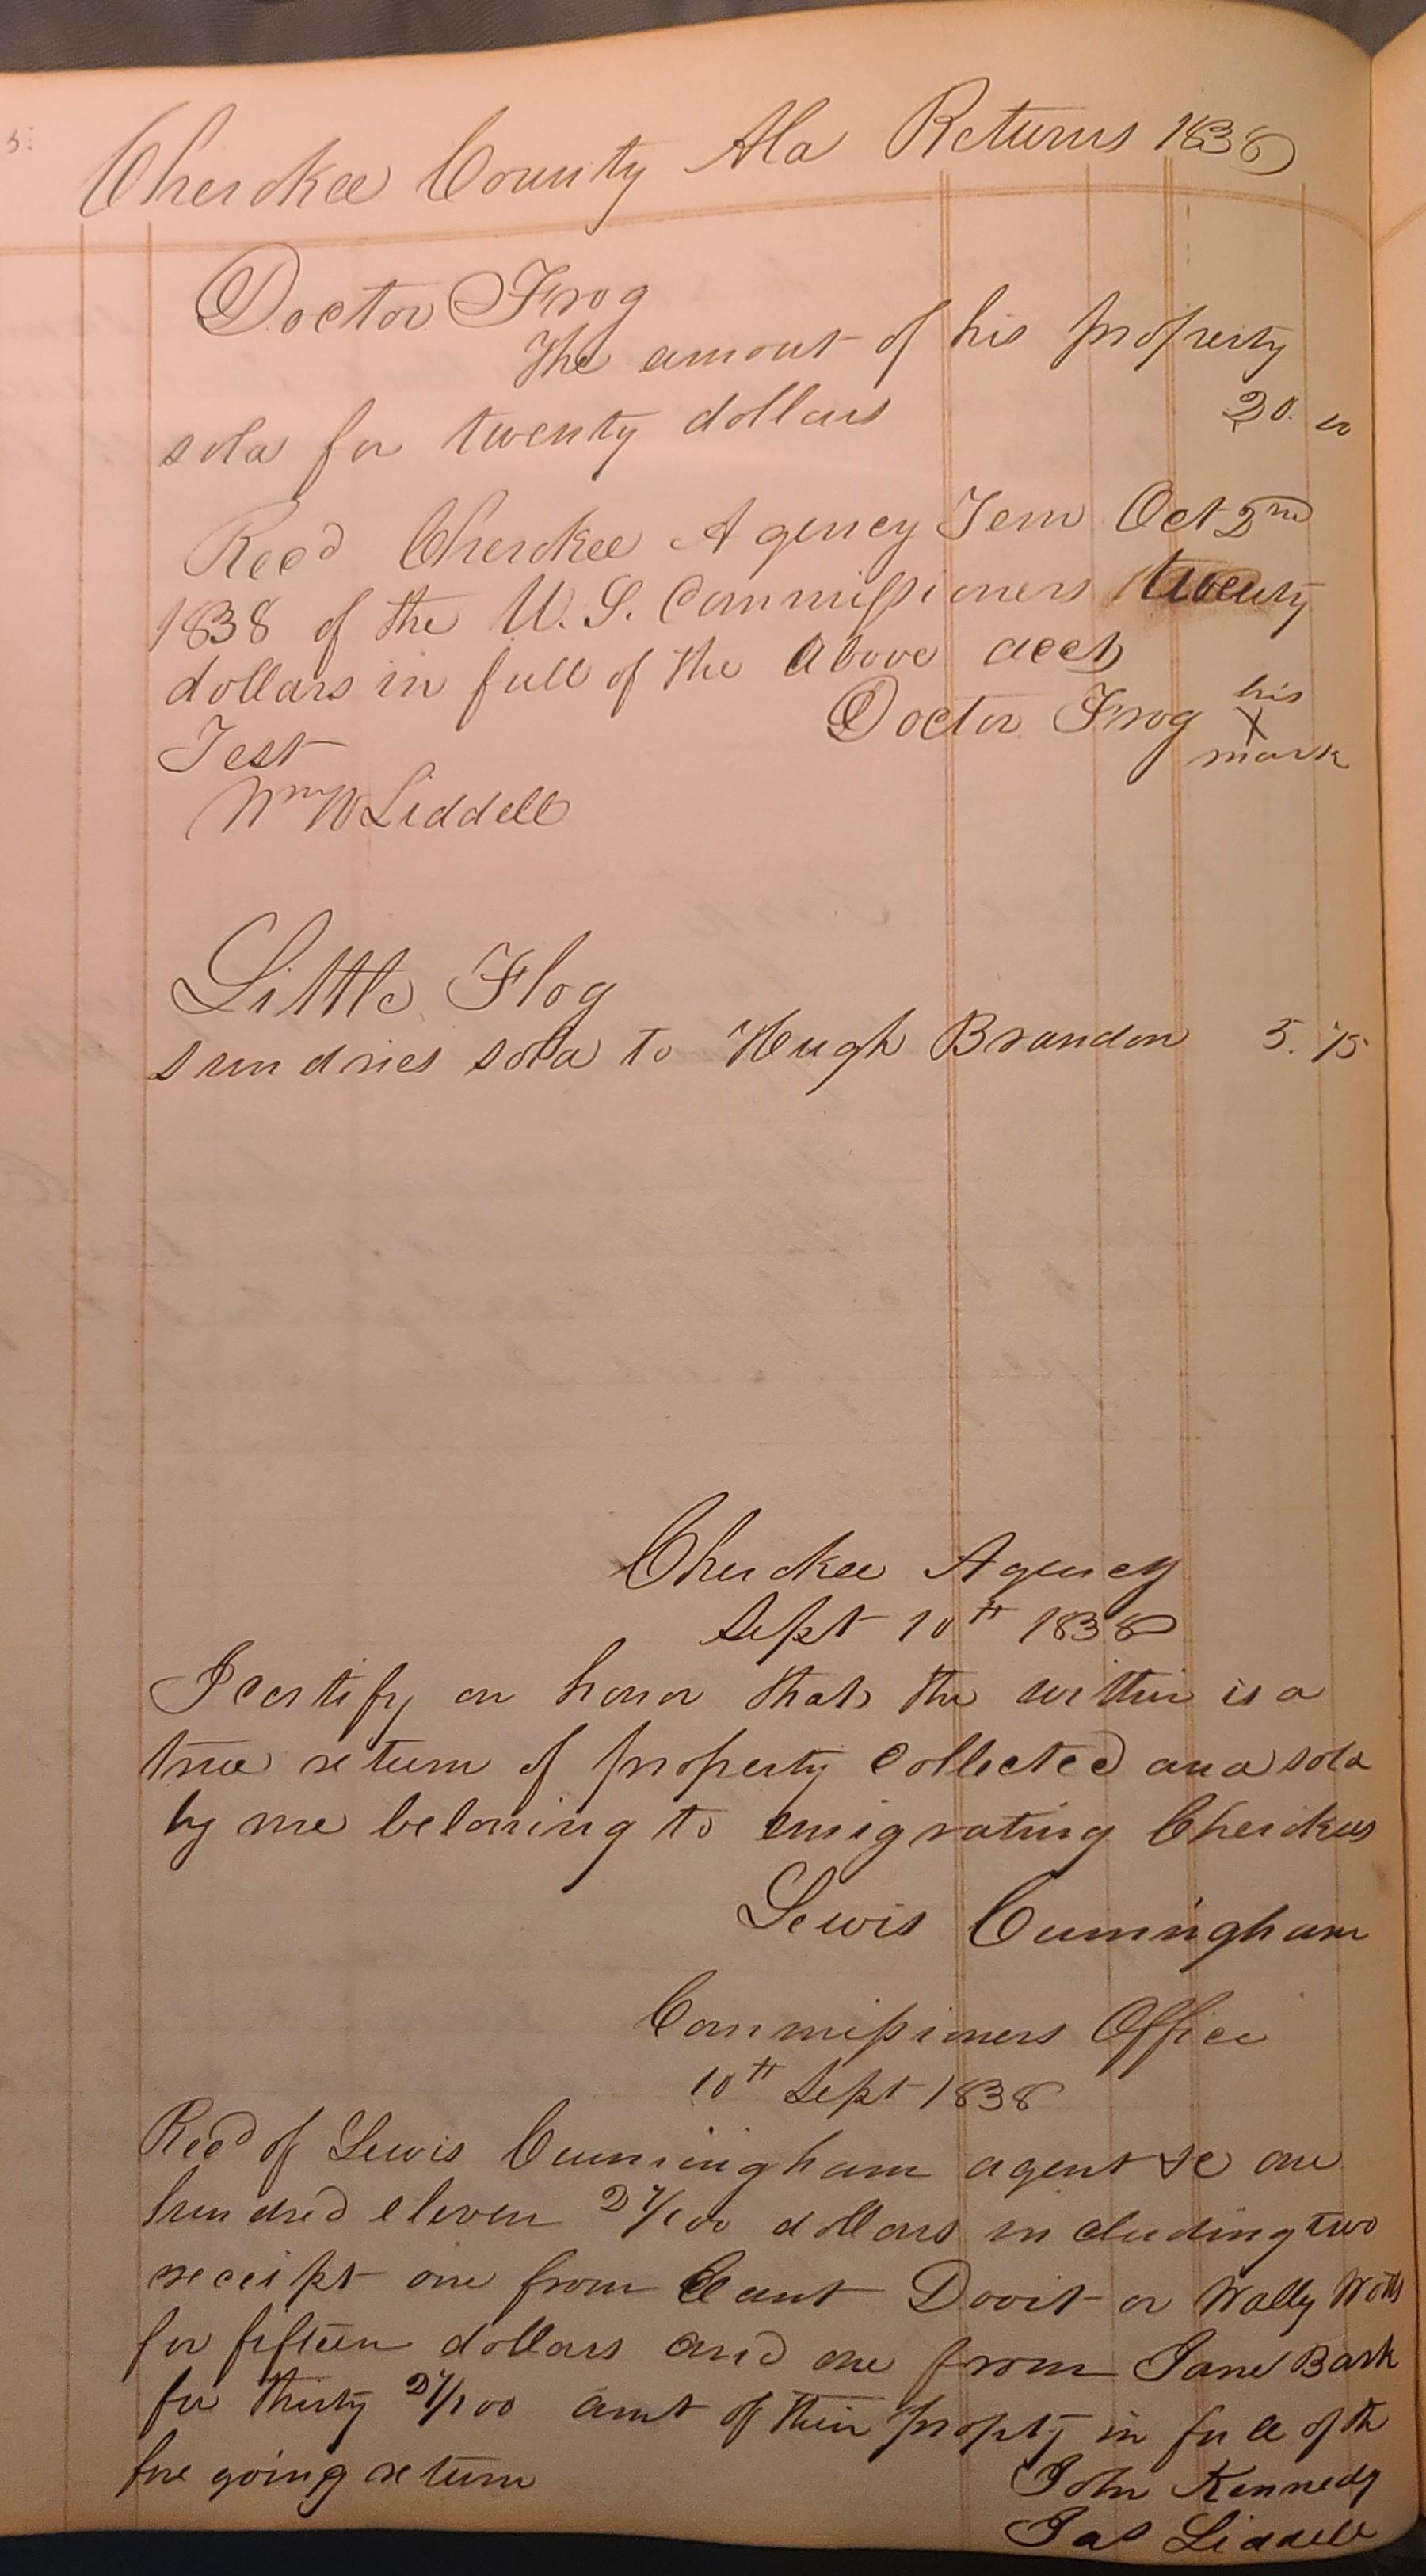 5.
Cherokee County Ala Returns 1838
Doctor Frog
The amout of his property
sold for twenty dollars 20. 00
Recd Cherokee Agency Tenn Oct 2nd
1838 of the U. S. Commissioners twenty
dollars in full of the above acct
Doctor Frog his
X
mark
Test
Wm W Liddell
Little Flog
sundries sold to Hugh Brandon 5. 75
Cherokee Agency
Sept 10th 1838
I certify on honor that the within is a
true return of property Collected and sold
by me beloning to emigrating Cherokees
Lewis Cuningham
Commissioners Office
10th Sept 1838
Recd of Lewis Cunningham agent &c one
hundred eleven 27/100 dollars including two
receipt one from Cant Dooit or Wally
for fifteen dollars and one from Jane Bark
for thirty 27/100 amt of their propty in full of th
fore going return
John Kennedy
Jas Liddell